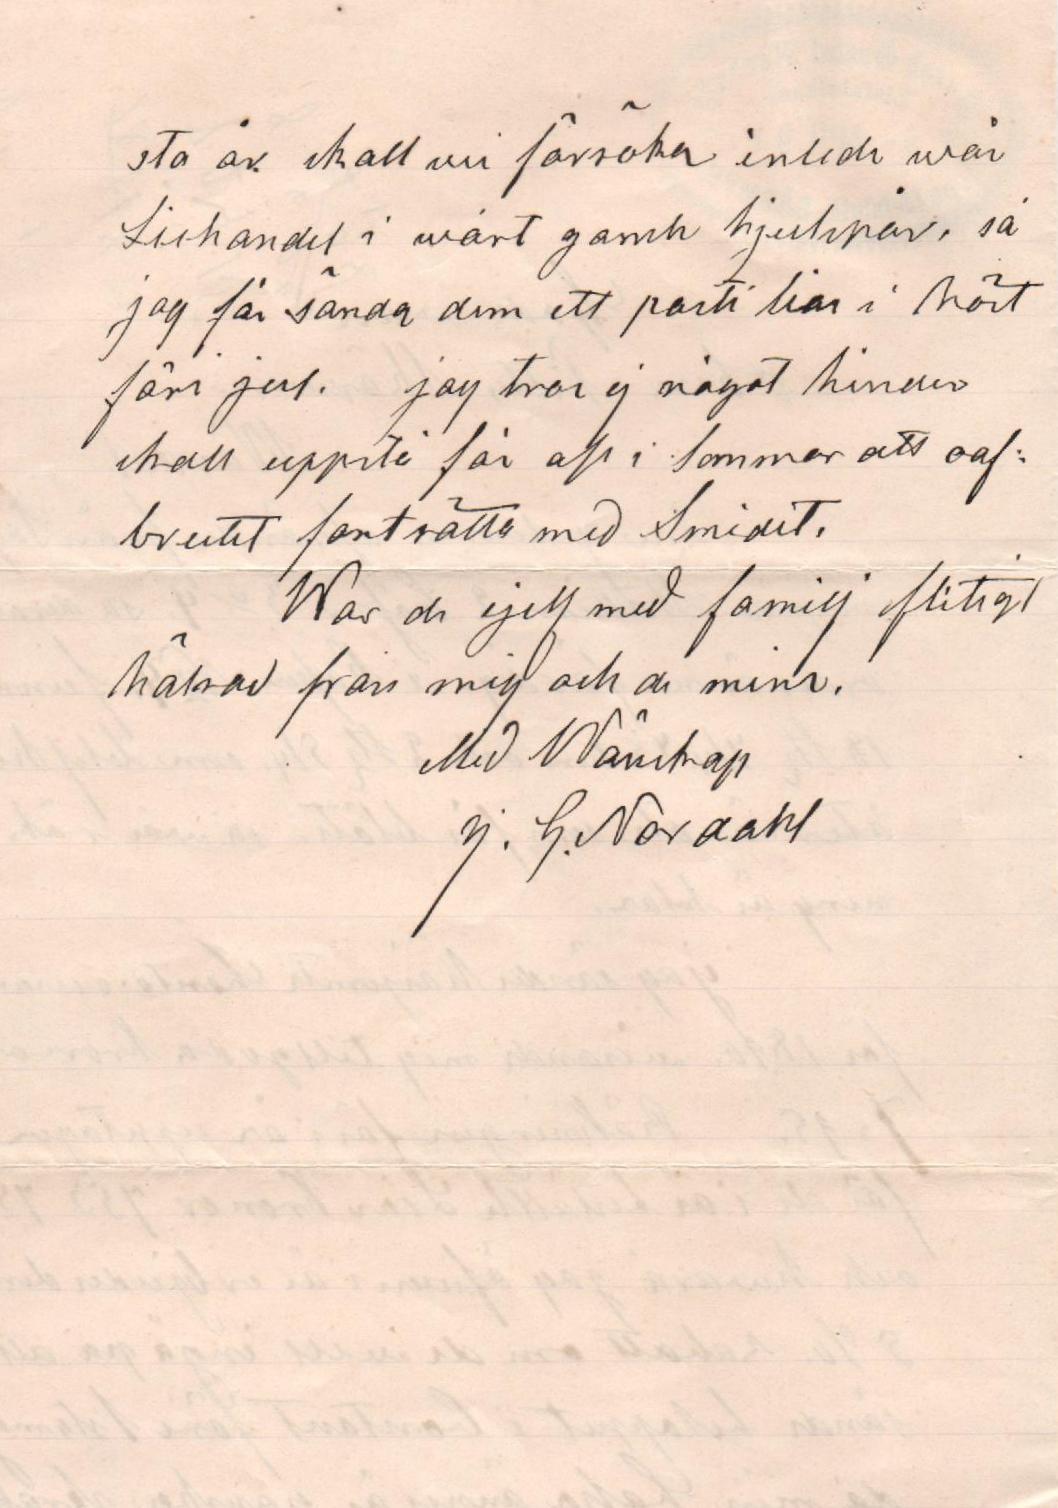 sta år skall vi försöka inleda wår
Liehandel i wårt gamla hjulspår, så
jag får sända dem ett parti liar i höst
före jul. jag tror ej något hinder
skall uppstå för oss i Sommar att oaf-
brutet fortsätta med Smidet.
War de sjelf med familj flitigt
hälsad från mig och de mina.
Med Wänskap
J. G. Nordahl